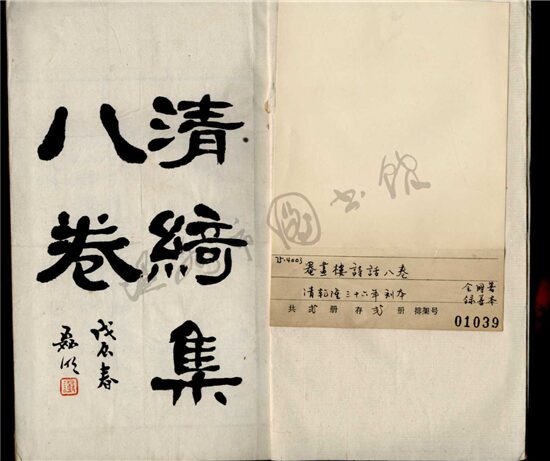 清綺集
八卷
戊辰春
25.4003
畧畫樓詩話八卷
清乾隆三十六年刻本
全國善
綠善本
共 弍 册 存 弍 册 排架号
01039
图书馆